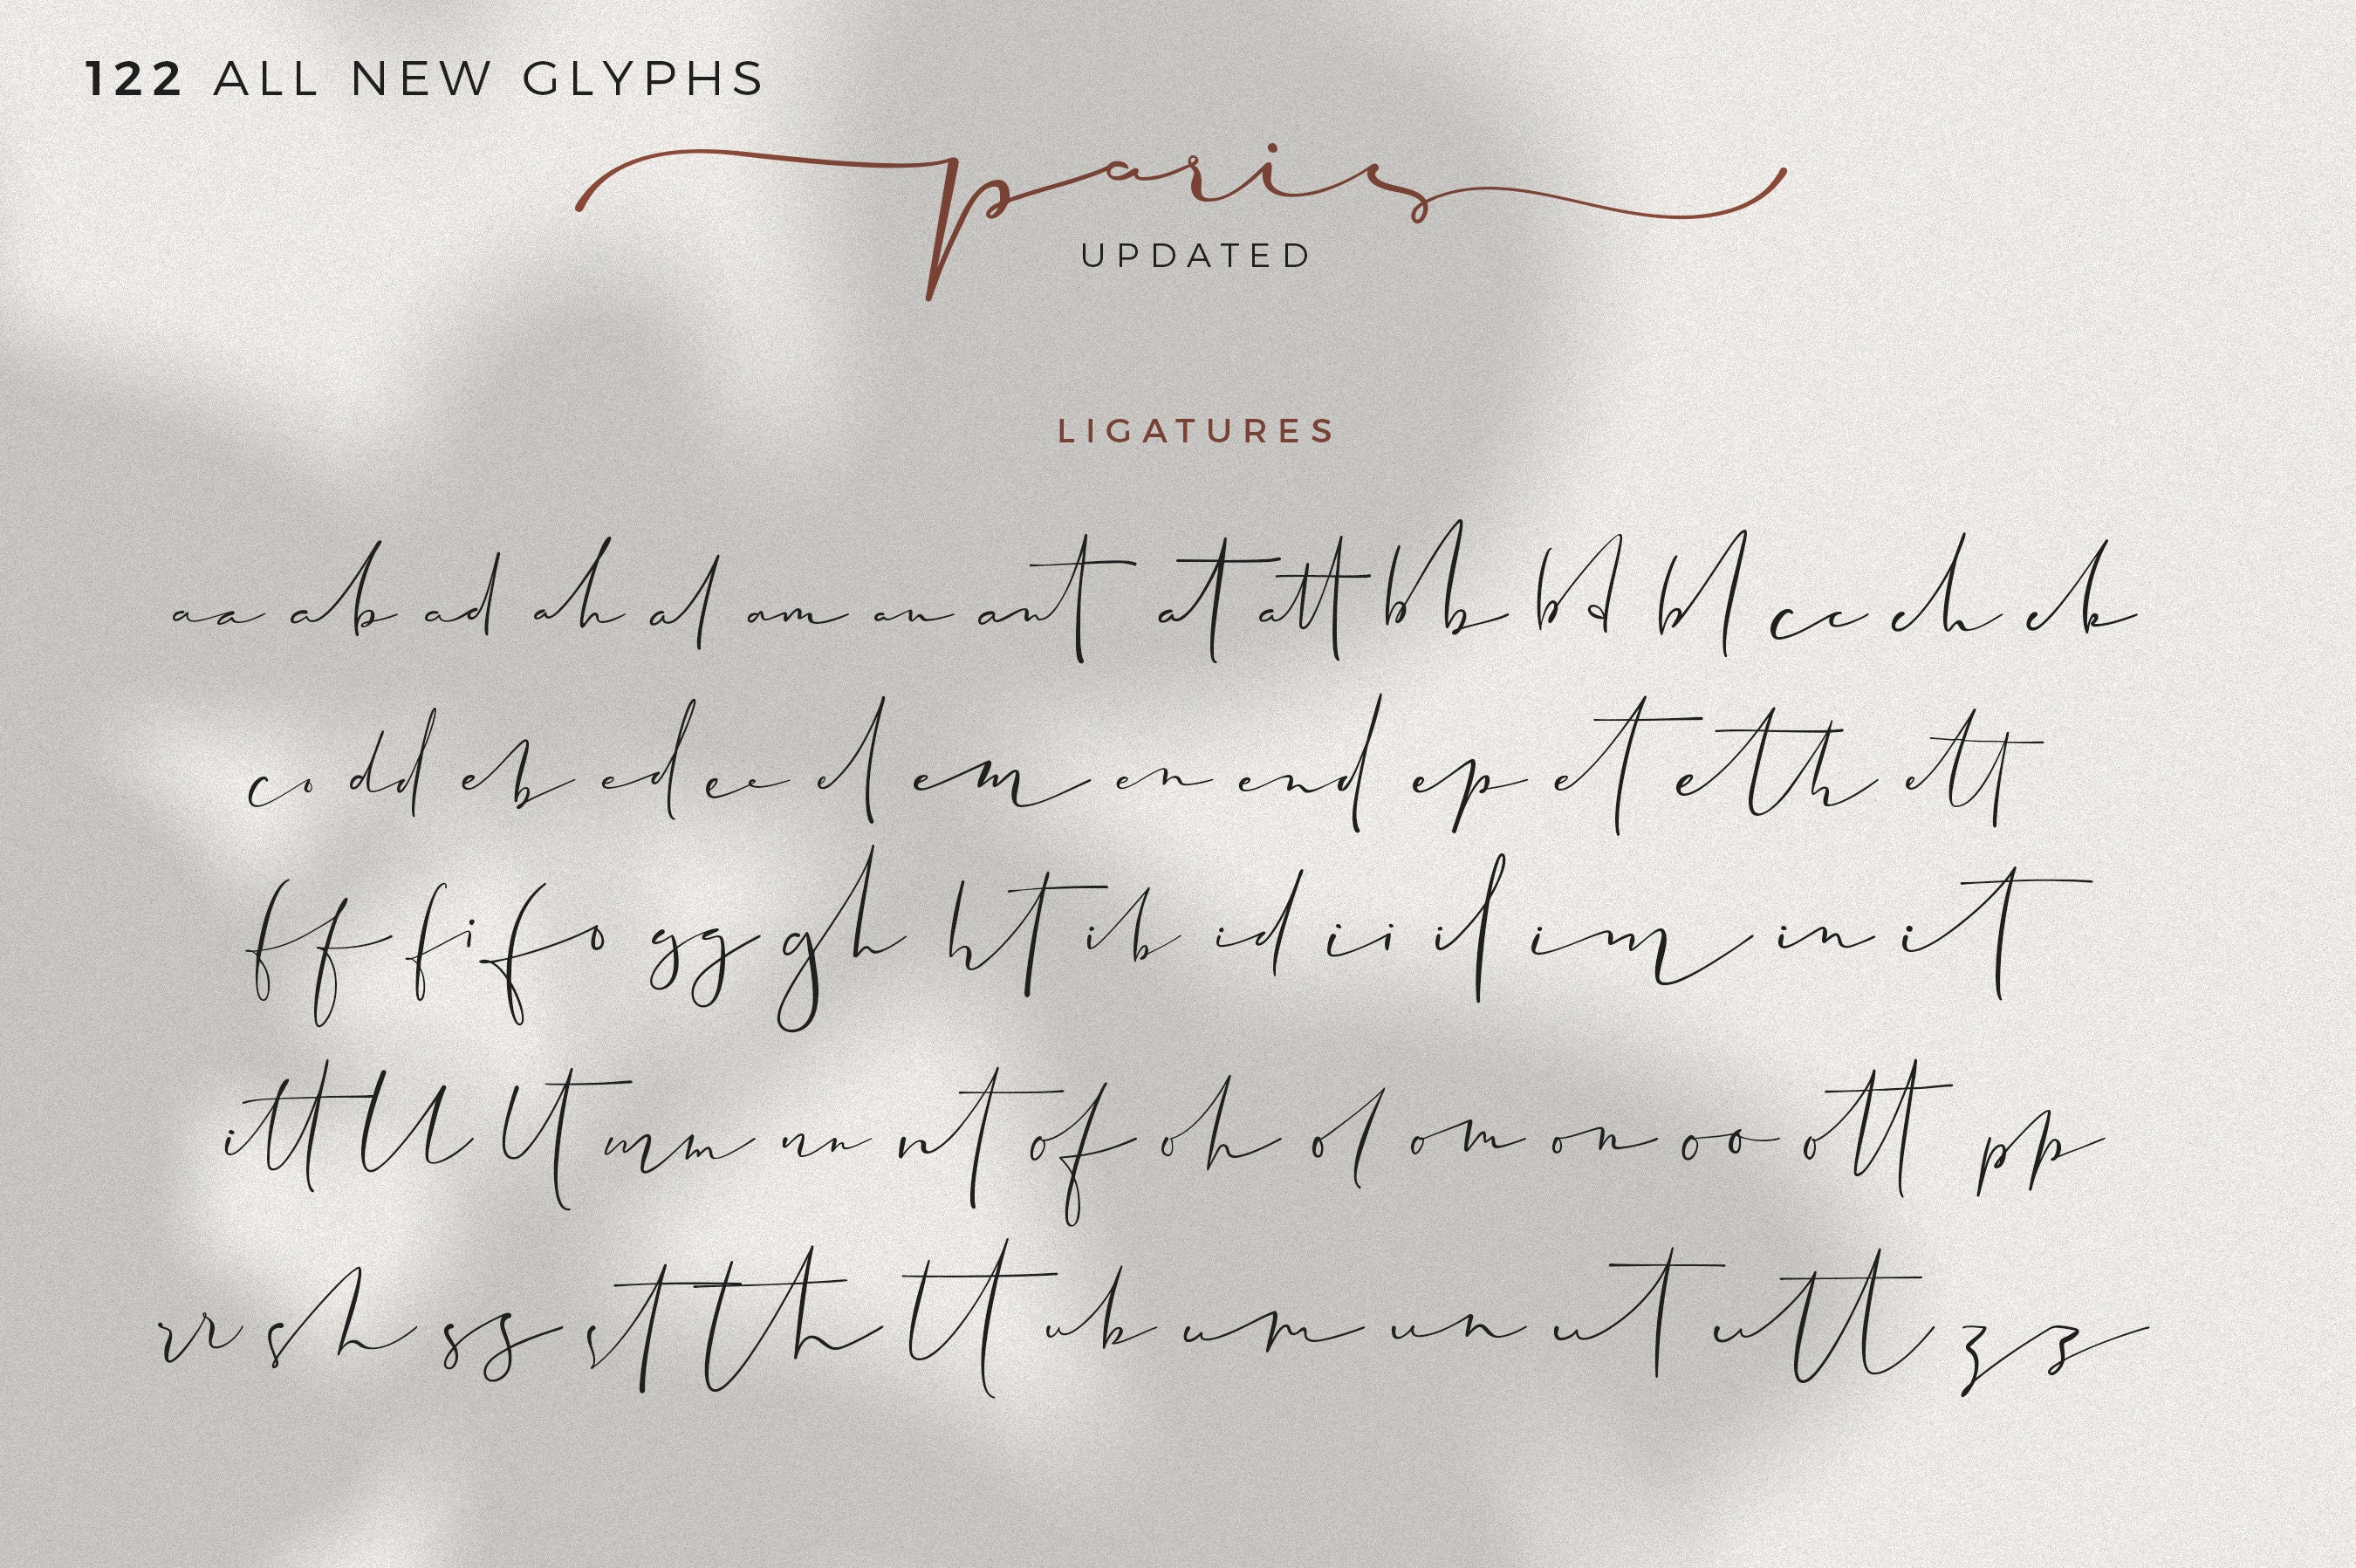 122 ALL NEW GLYPHS
paris
UPDATED
LIGATURES
aa ab ad ah al am an ant at att bb bd bl cc ch ck
co dd eb ed ee el em en end ep et eth ett
ff fi fo gg gh ht ib id ii il im in it
itt ll lt mm nn nt of oh ol om on oo ott pp
rr sh ss st th tt ub um un ut utt zz